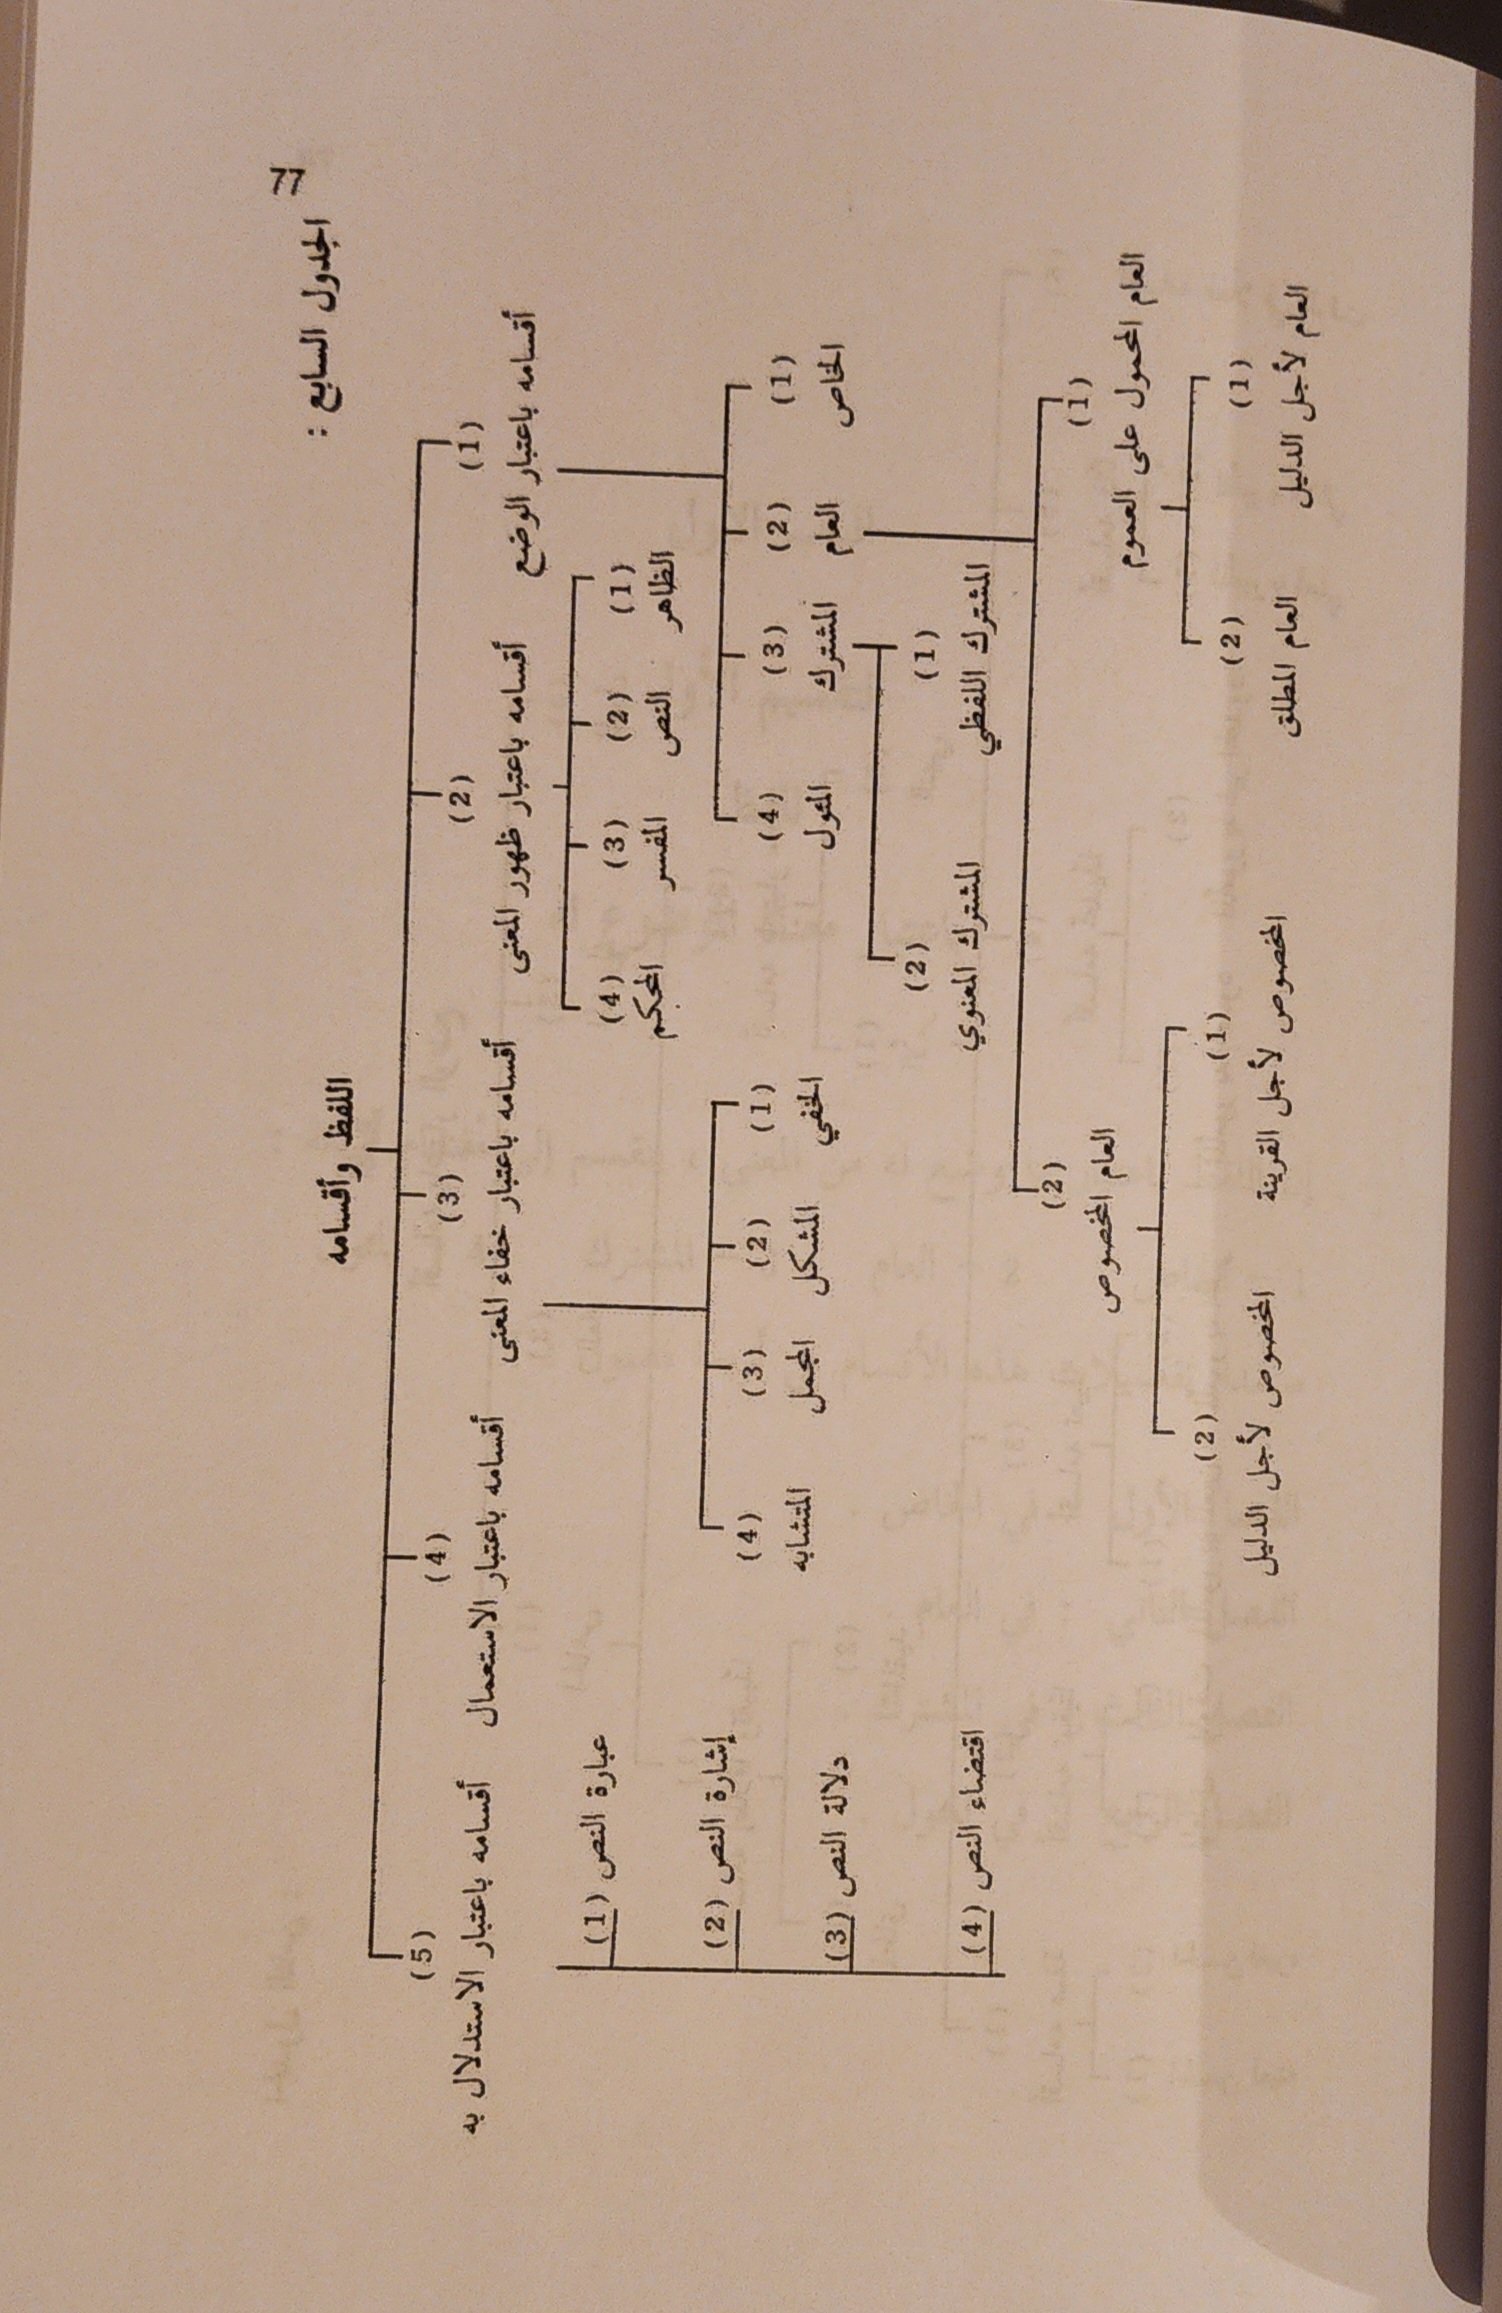 77
الجدول السابع :
اللفظ وأقسامه
(1) (2) (3) (4) (5)
أقسامه باعتبار الوضع
أقسامه باعتبار ظهور المعنى
أقسامه باعتبار خفاء المعنى
أقسامه باعتبار الاستعمال
أقسامه باعتبار الاستدلال به
(1) (2) (3) (4)
الظاهر النص المفسر المحكم
(1) عبارة النص
(2) إشارة النص
(3) دلالة النص
(4) اقتضاء النص
(1) (2) (3) (4)
الخاص العام المشترك المئول
(1) (2) (3) (4)
الخفي المشكل المجمل المتشابه
(1) (2)
المشترك اللفظي المشترك المعنوي
(1) (2)
العام المحمول على العموم العام المخصوص
(1) (2)
العام لأجل الدليل العام المطلق
(1) (2)
المخصوص لأجل القرينة المخصوص لأجل الدليل